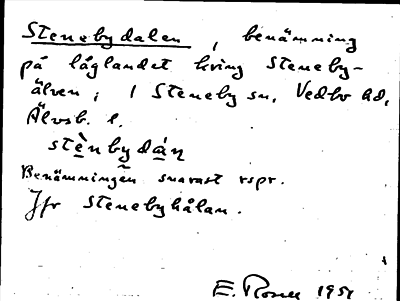 Stenebydalen, benämning
på låglandet kring Steneby-
älven, i Steneby sn, Vedbo hd,
Älvsb. l.
stè̱nbydá̱ṇ
Benämningen snarast rspr.
Jfr Stenebyhålan.
E. Rosell 1951